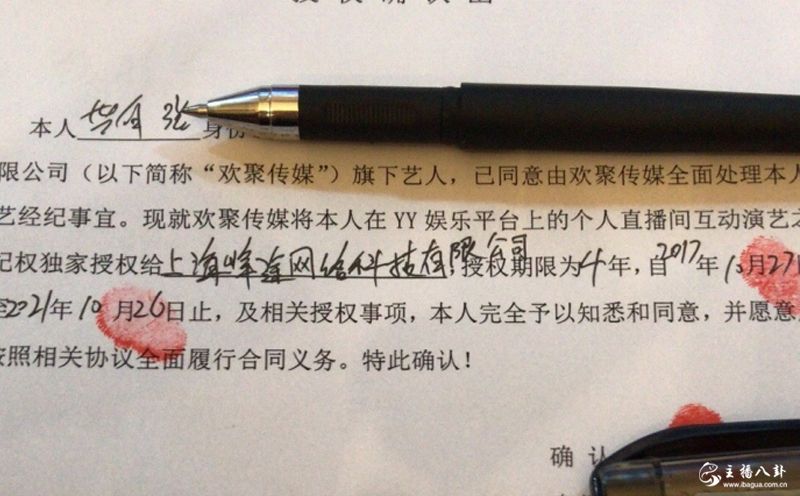 授权确认函
本人 身份
限公司（以下简称“欢聚传媒”）旗下艺人，已同意由欢聚传媒全面处理本人
艺经纪事宜。现就欢聚传媒将本人在 YY 娱乐平台上的个人直播间互动演艺之
纪权独家授权给上海 网络科技有限公司，授权期限为4年，自2017年10月27日
至2021年10月26日止，及相关授权事项，本人完全予以知悉和同意，并愿意
按照相关协议全面履行合同义务。特此确认！
确认
主播八卦
www.ibagua.com.cn